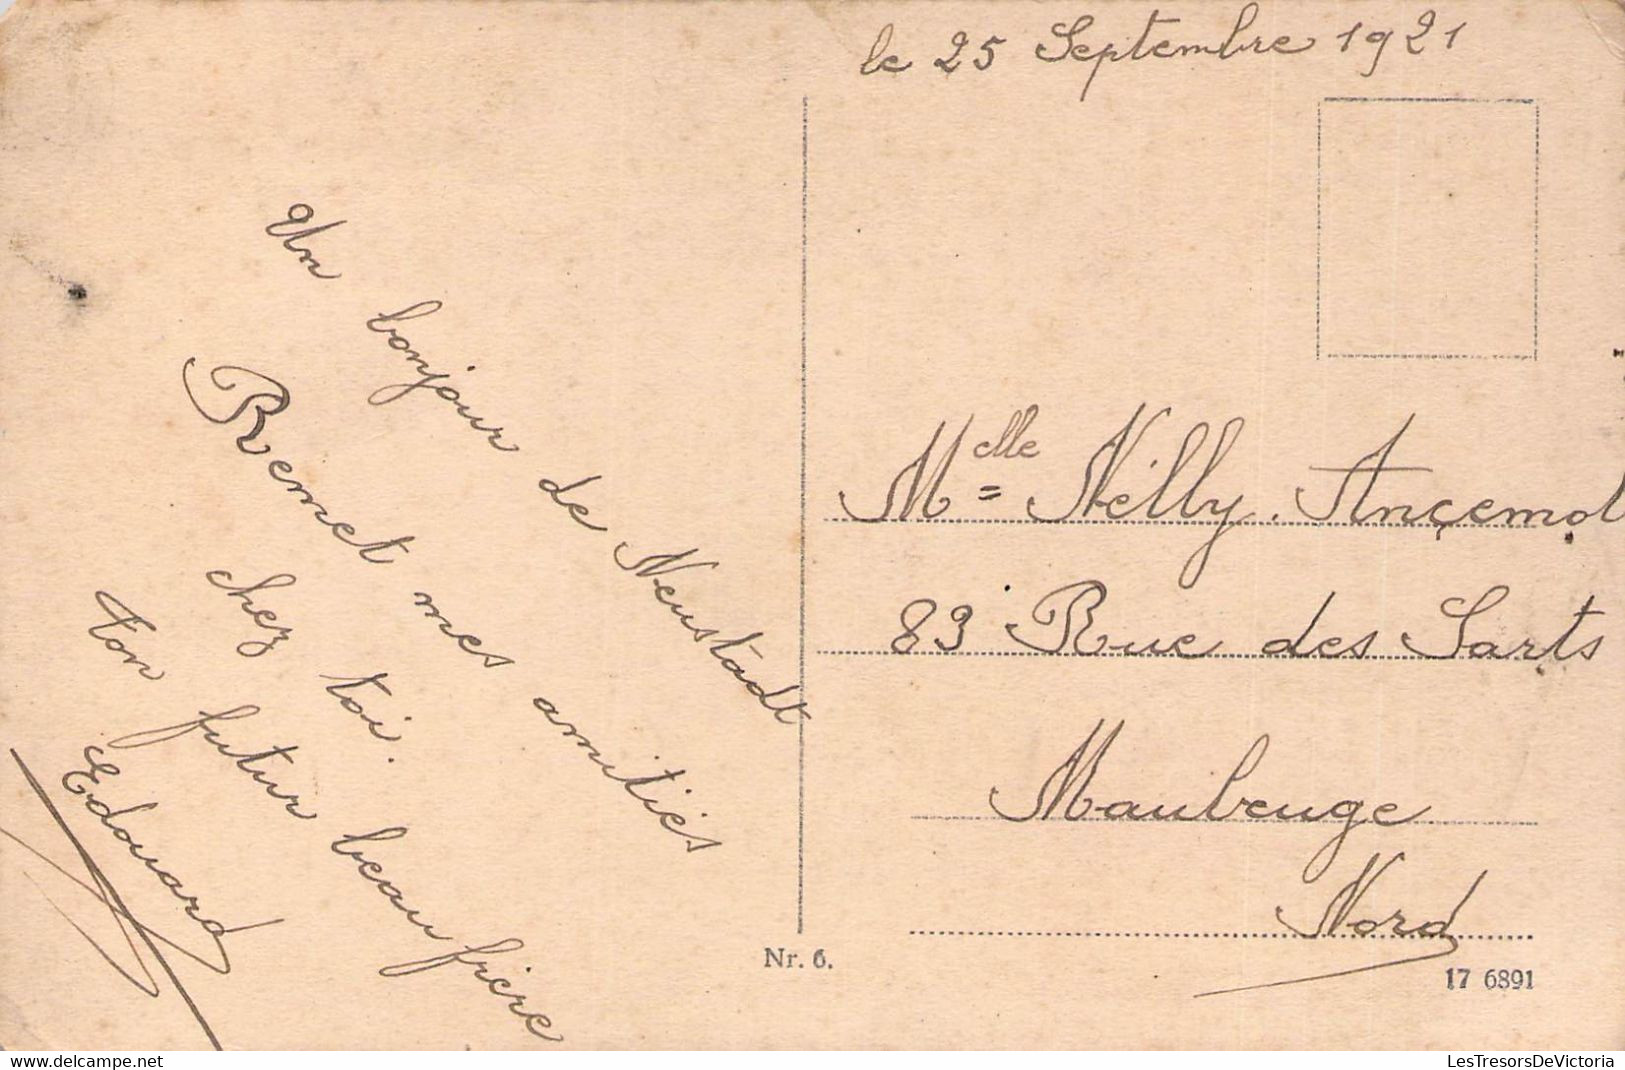 le 25 Septembre 1921
Un bonjour de Neustadt
Remet mes amitiés
chez toi.
ton futur beau frère
Edouard
Melle = Nelly. Ançemot
83 Rue des Sarts
Maubeuge
Nord
Nr. 6.
17 6891
LesTresorsDeVictoria